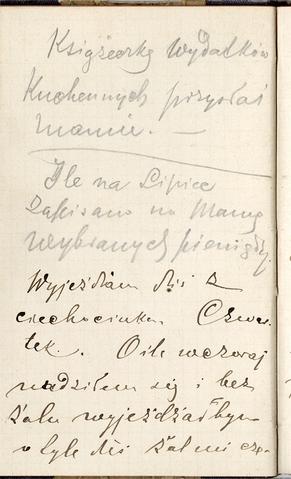 Książeczkę wydatków
Kuchennych przysłać
mamie. —
Ile na Lipiec
zapisano na Mamę
wybranych pieniędzy.
Wyjeżdżam dziś z
ciechocinka. Czwar-
tek. O ile wczoraj
nudziłem się i bez
żalu wyjeżdżałbym
o tyle dziś żal mi